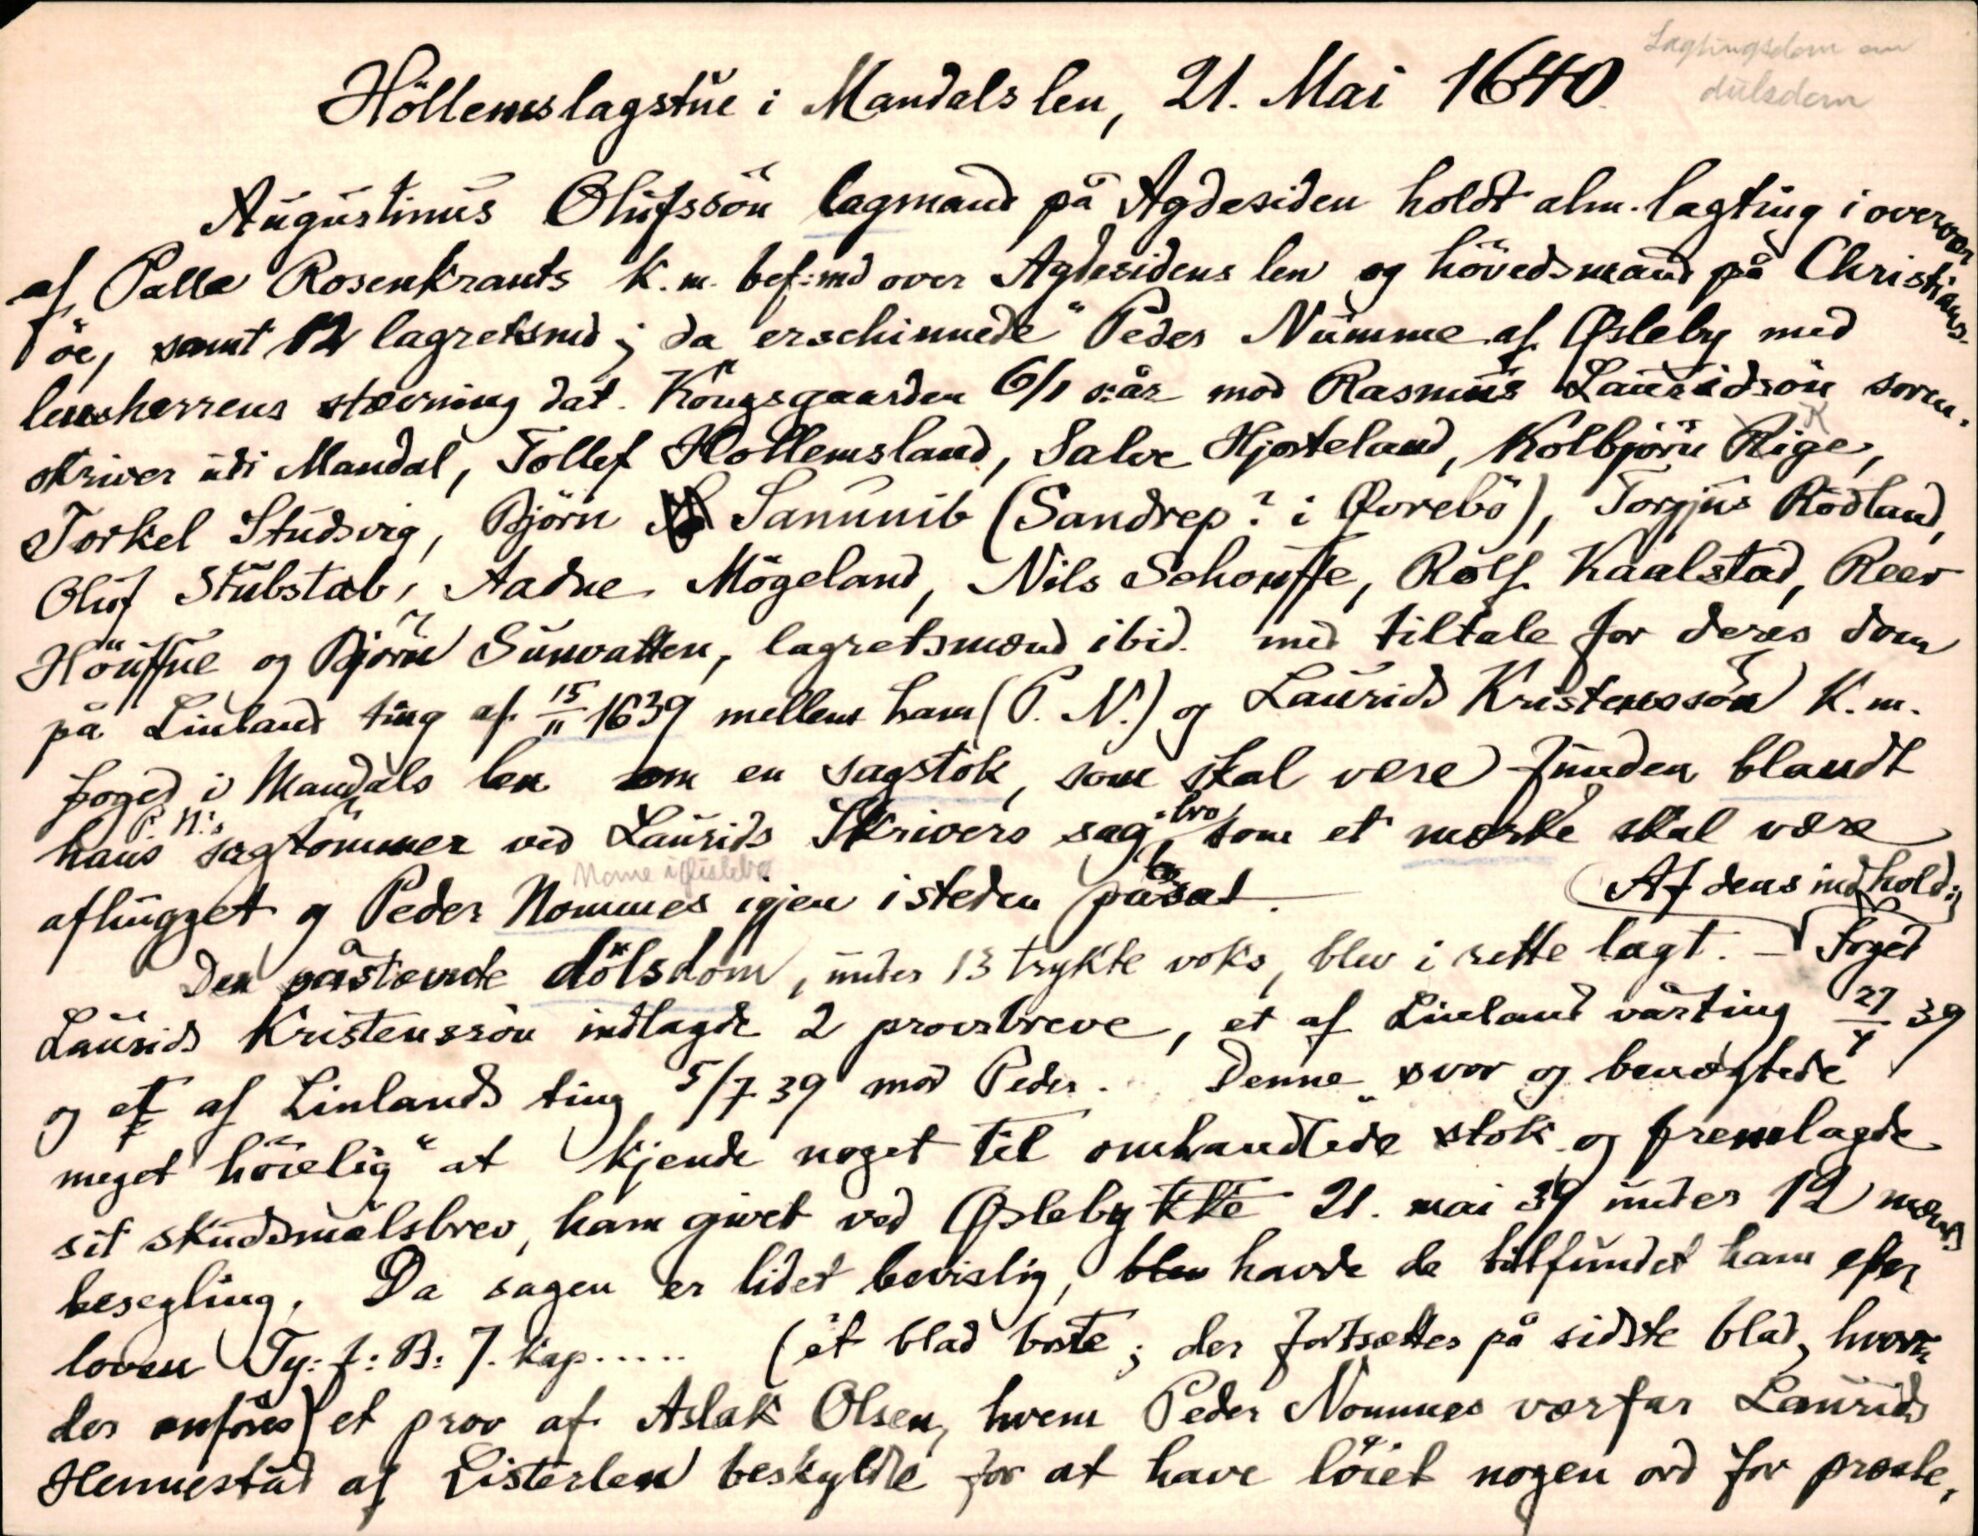 Lagtingsdom om
dulsdom
Höllemslagstue i Mandals len, 21. Mai 1640.
Augustinus Olufssön lagmand på Agdesiden holdt alm. lagting i overvær
af Palle Rosenkrants k.m. bef:md over Agdesidens len og hövedsmand på Christians-
öe, samt 12 lagretsmd; da "erschinnede" Peder Numme af Øsleby med
lensherrens stævning dat. Kongsgaarden 6/1 s:år mod Rasmus Lauridsön soren-
skriver udi Mandal, Tollef Hollemsland, Salve Hjorteland, Kolbjörn Rige,
Torkel Studsvig, Björn Sanunib (Sandrep? i Øvrebö), Torjus Rödland,
Oluf Stubstab, Aadne Mögeland, Nils Schouffe, Rolf Kaalstad, Reer
Höuffue og Björn Sunvatten, lagretsmænd ibid. med tiltale for deres dom
på Linland ting af 15/11 1639 mellem ham (P. N.) og Laurids Kristenssön K.m.
foged i Mandals len om en sagstok, som skal være funden blandt
hans P. N:s sagtömmer ved Laurids Skrivers sag-bro, som et mærke skal være
Nome i Øislebø
afhugget og Peder Nommes igjen isteden påsat. (Af dens indhold:)
Den påstævnte dölsdom, under 13 trykte voks, blev i rette lagt. – Foged
Laurids Kristenssön indlagde 2 provsbreve, et af Linland vårting 27/4 39
og et af Linlands ting 5/7 39 mod Peder. Denne svor og benægtede
"meget höielig" at kjende noget til omhandlede stok og fremlagde
sit skudsmålsbrev, ham givet ved Øsleby kke 21. mai 39 under 12 mænds
besegling. Da sagen er lidet bevislig, blev havde de tilfundet ham efter
loven Ty: f: B: 7. kap..... (ét blad borte; der fortsættes på sidste blad, hvor
der anföres) et prov af Aslak Olsen, hvem Peder Nommes værfar Laurids
Hennestad af Listerlen beskyldte for at have löiet nogen ord for præste,